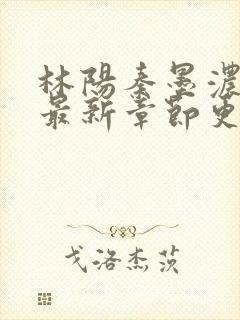 林陽秦墨濃
最新章節更
戈洛杰茨